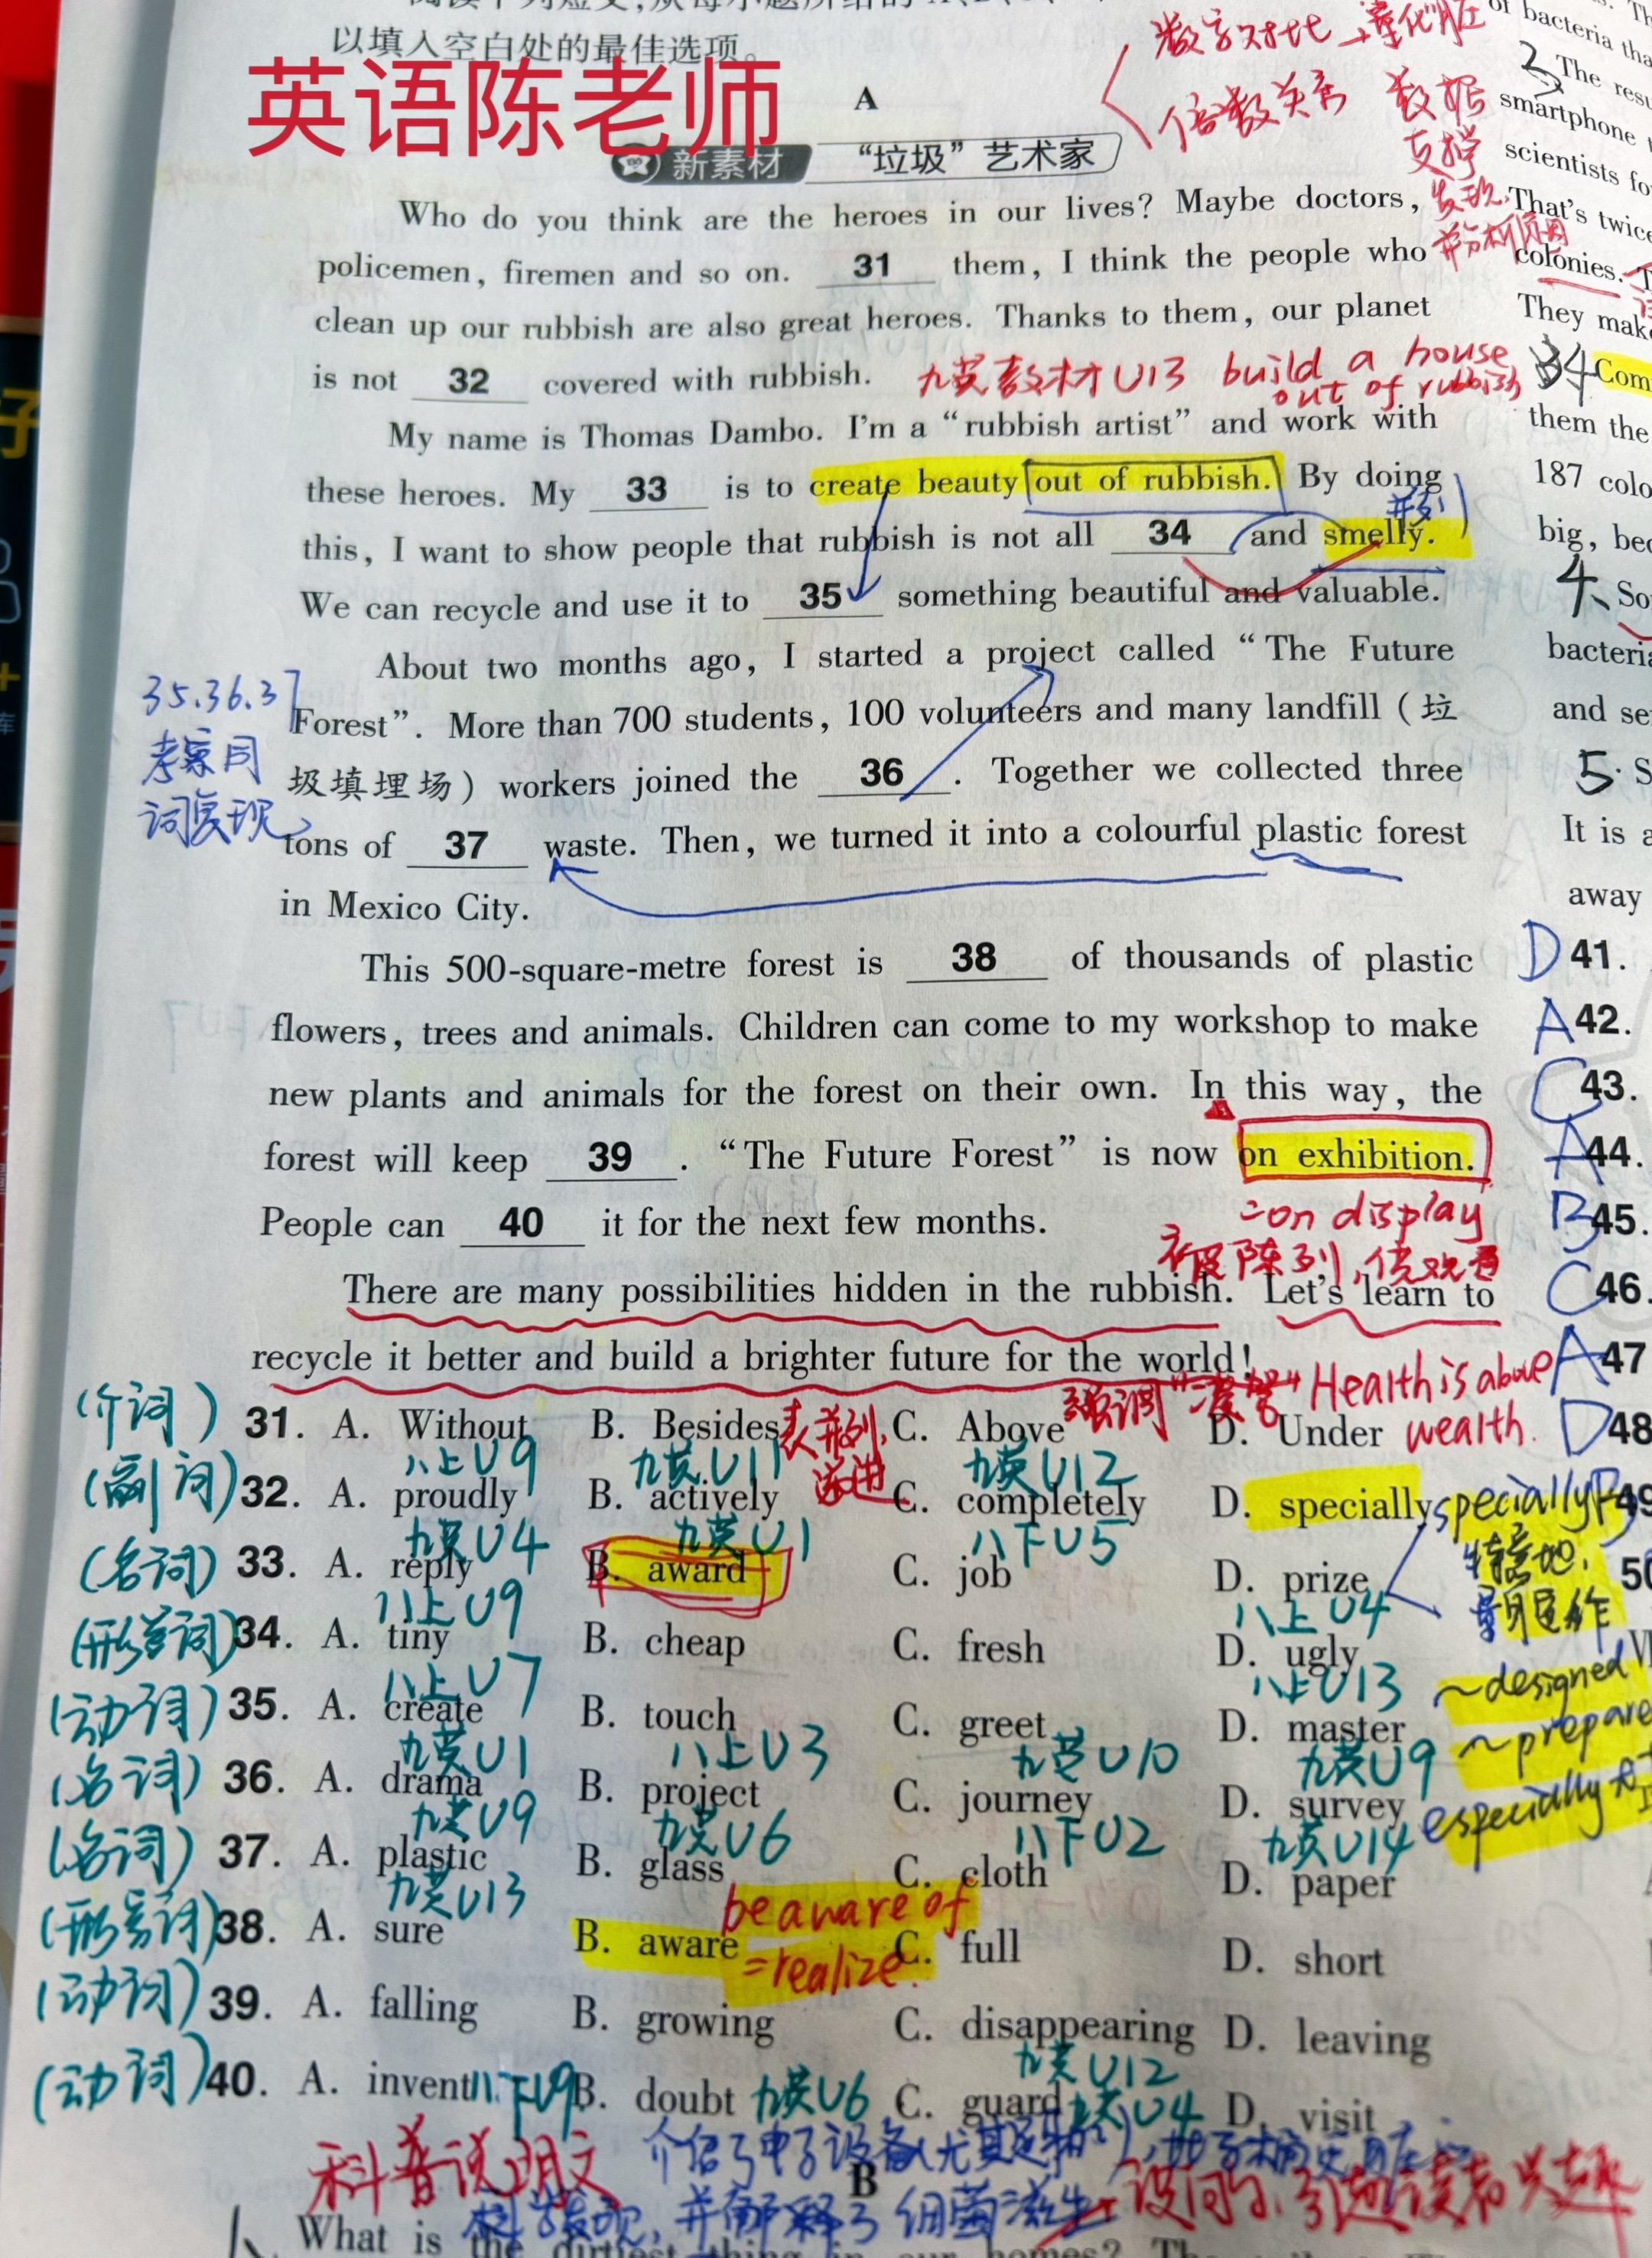 以填入空白处的最佳选项。
英语陈老师
A
新素材 “垃圾”艺术家
数字对比→量化脏
倍数关系 数据
支撑
Who do you think are the heroes in our lives? Maybe doctors,
policemen, firemen and so on. 31 them, I think the people who
clean up our rubbish are also great heroes. Thanks to them, our planet
is not 32 covered with rubbish.
九英教材U13 build a house
out of rubbish
My name is Thomas Dambo. I'm a “rubbish artist” and work with
these heroes. My 33 is to create beauty out of rubbish. By doing
并列
this, I want to show people that rubbish is not all 34 and smelly.
We can recycle and use it to 35 something beautiful and valuable.
About two months ago, I started a project called “The Future
Forest”. More than 700 students, 100 volunteers and many landfill (垃
圾填埋场) workers joined the 36. Together we collected three
tons of 37 waste. Then, we turned it into a colourful plastic forest
in Mexico City.
35.36.37
考察同
词复现
This 500-square-metre forest is 38 of thousands of plastic
flowers, trees and animals. Children can come to my workshop to make
new plants and animals for the forest on their own. In this way, the
forest will keep 39. “The Future Forest” is now on exhibition.
=on display
People can 40 it for the next few months.
There are many possibilities hidden in the rubbish. Let's learn to
recycle it better and build a brighter future for the world!
Health is above
wealth.
(介词) 31. A. Without B. Besides 表并列, 递进 C. Above 强调 D. Under
八上U9 九英U11 九英U12
(副词) 32. A. proudly B. actively C. completely D. specially
九英U4 九英U1 八下U5
(名词) 33. A. reply B. award C. job D. prize
八上U9 八上U4
(形容词) 34. A. tiny B. cheap C. fresh D. ugly
八上U7 八上U13
(动词) 35. A. create B. touch C. greet D. master
九英U1 八上U3 九英U10 九英U9
(名词) 36. A. drama B. project C. journey D. survey
九英U9 九英U6 八下U2 九英U14
(名词) 37. A. plastic B. glass C. cloth D. paper
九英U13
be aware of
=realize.
(形容词) 38. A. sure B. aware C. full D. short
(动词) 39. A. falling B. growing C. disappearing D. leaving
九英U12
(动词) 40. A. invent 八下U9 B. doubt 九英U6 C. guard 九英U4 D. visit
specially
特意地,
~designed
~prepare
especially
科普说明文
B
设问句, 引起读者兴趣
What is the dirtiest thing in our homes? Th
of bacteria tha
The resu
smartphone
scientists fo
That's twice
colonies.
They make
34 Com
them the
187 colo
big, bec
4、So
bacteria
and se
5. S
It is a
away
D 41.
A 42.
C 43.
A 44.
B 45.
C 46.
A 47
D 48
49
50